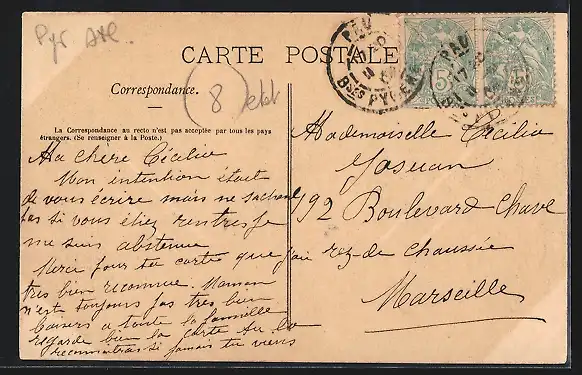 Pyr Atl.
CARTE POSTALE
Correspondance.
8
La Correspondance au recto n'est pas acceptée par tous les pays
étrangers. (Se renseigner à la Poste.)
Ma chère Cécilia
Mon intention était
de vous écrire mais ne sachant
pas si vous étiez rentres je
me suis abstenue
Merci pour ta carte que j'ai
très bien reconnue. Maman
n'est toujours pas très bien
Baisers a toute la famille
regarde bien la carte tu la
reconnaitras si jamais tu viens
PAU
Bses PYREN
5
PAU
Mademoiselle Cécilia
192 Boulevard Chave
rez-de Chaussée
Marseille